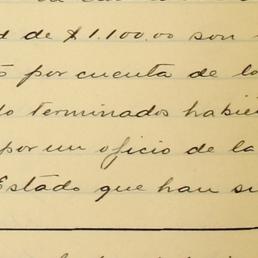 d de $1.100.00 son
por cuenta de lo
do terminados habié
por un oficio de la
Estado que han su